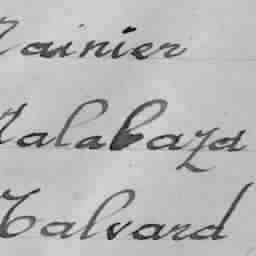 Rainier
Malabaza
Talvard